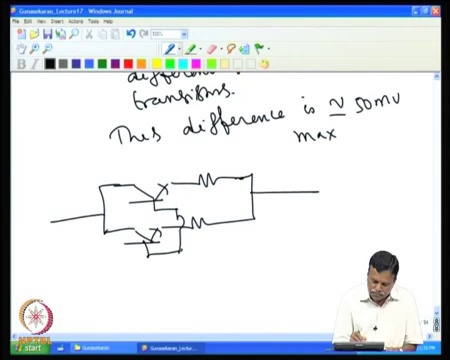 Gunasekaran_Lecture17 - Windows Journal
File Edit View Insert Actions Tools Help
100%
B I
transistors.
This difference is ≈ 50mV
max
NPTEL
start
Gunasekaran
Gunasekaran_Lectu...